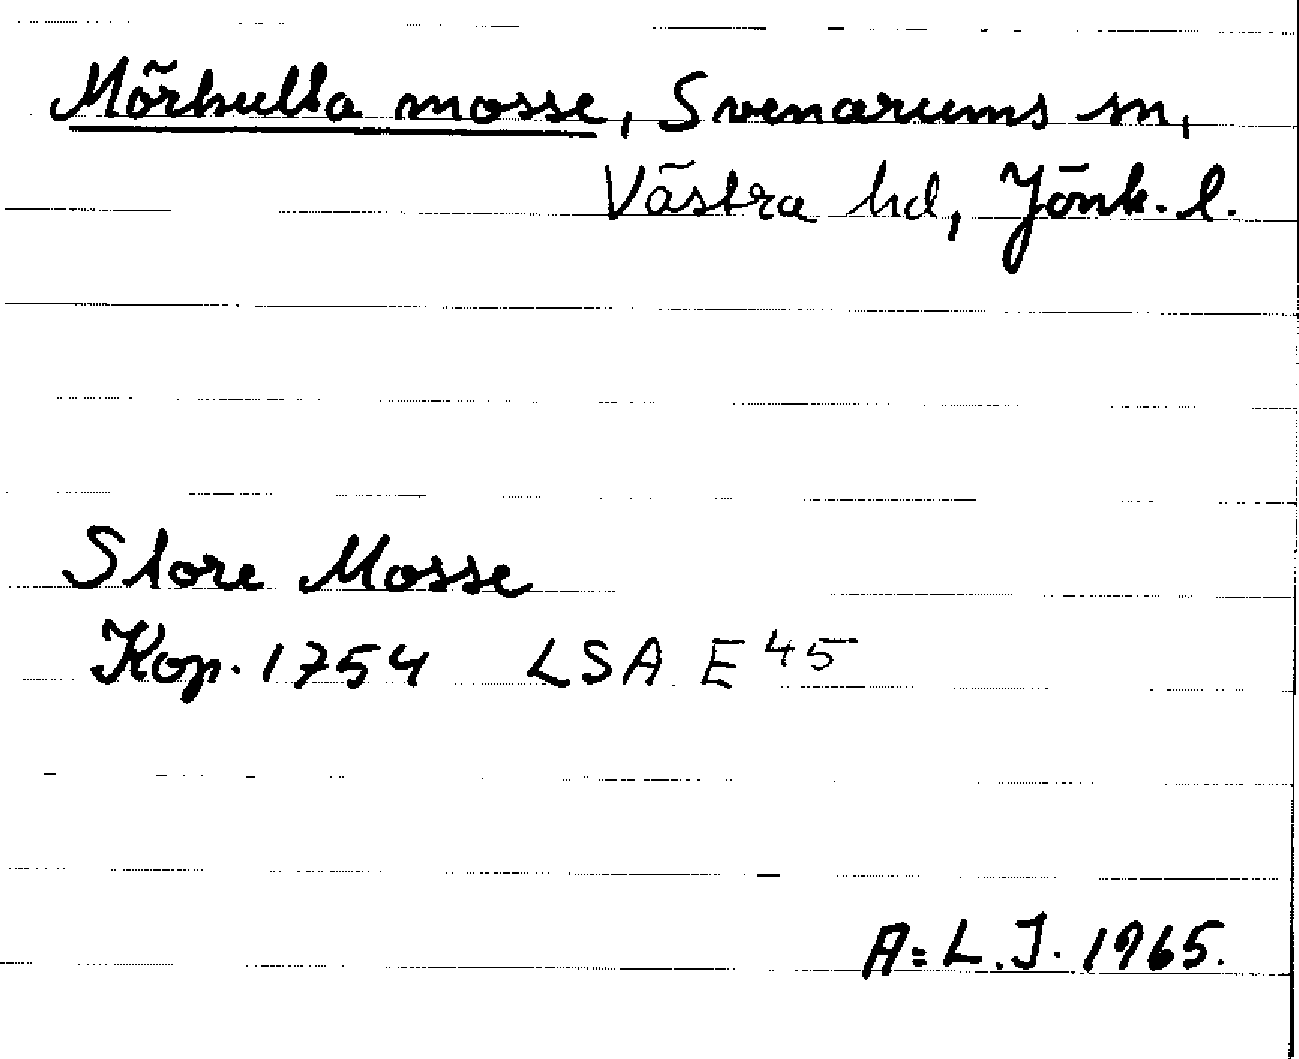 Mörhulta mosse, Svenarums sn,
Västra hd, Jönk. l.
Store Mosse
Kop. 1754 LSA E 45
A:L.J. 1965.